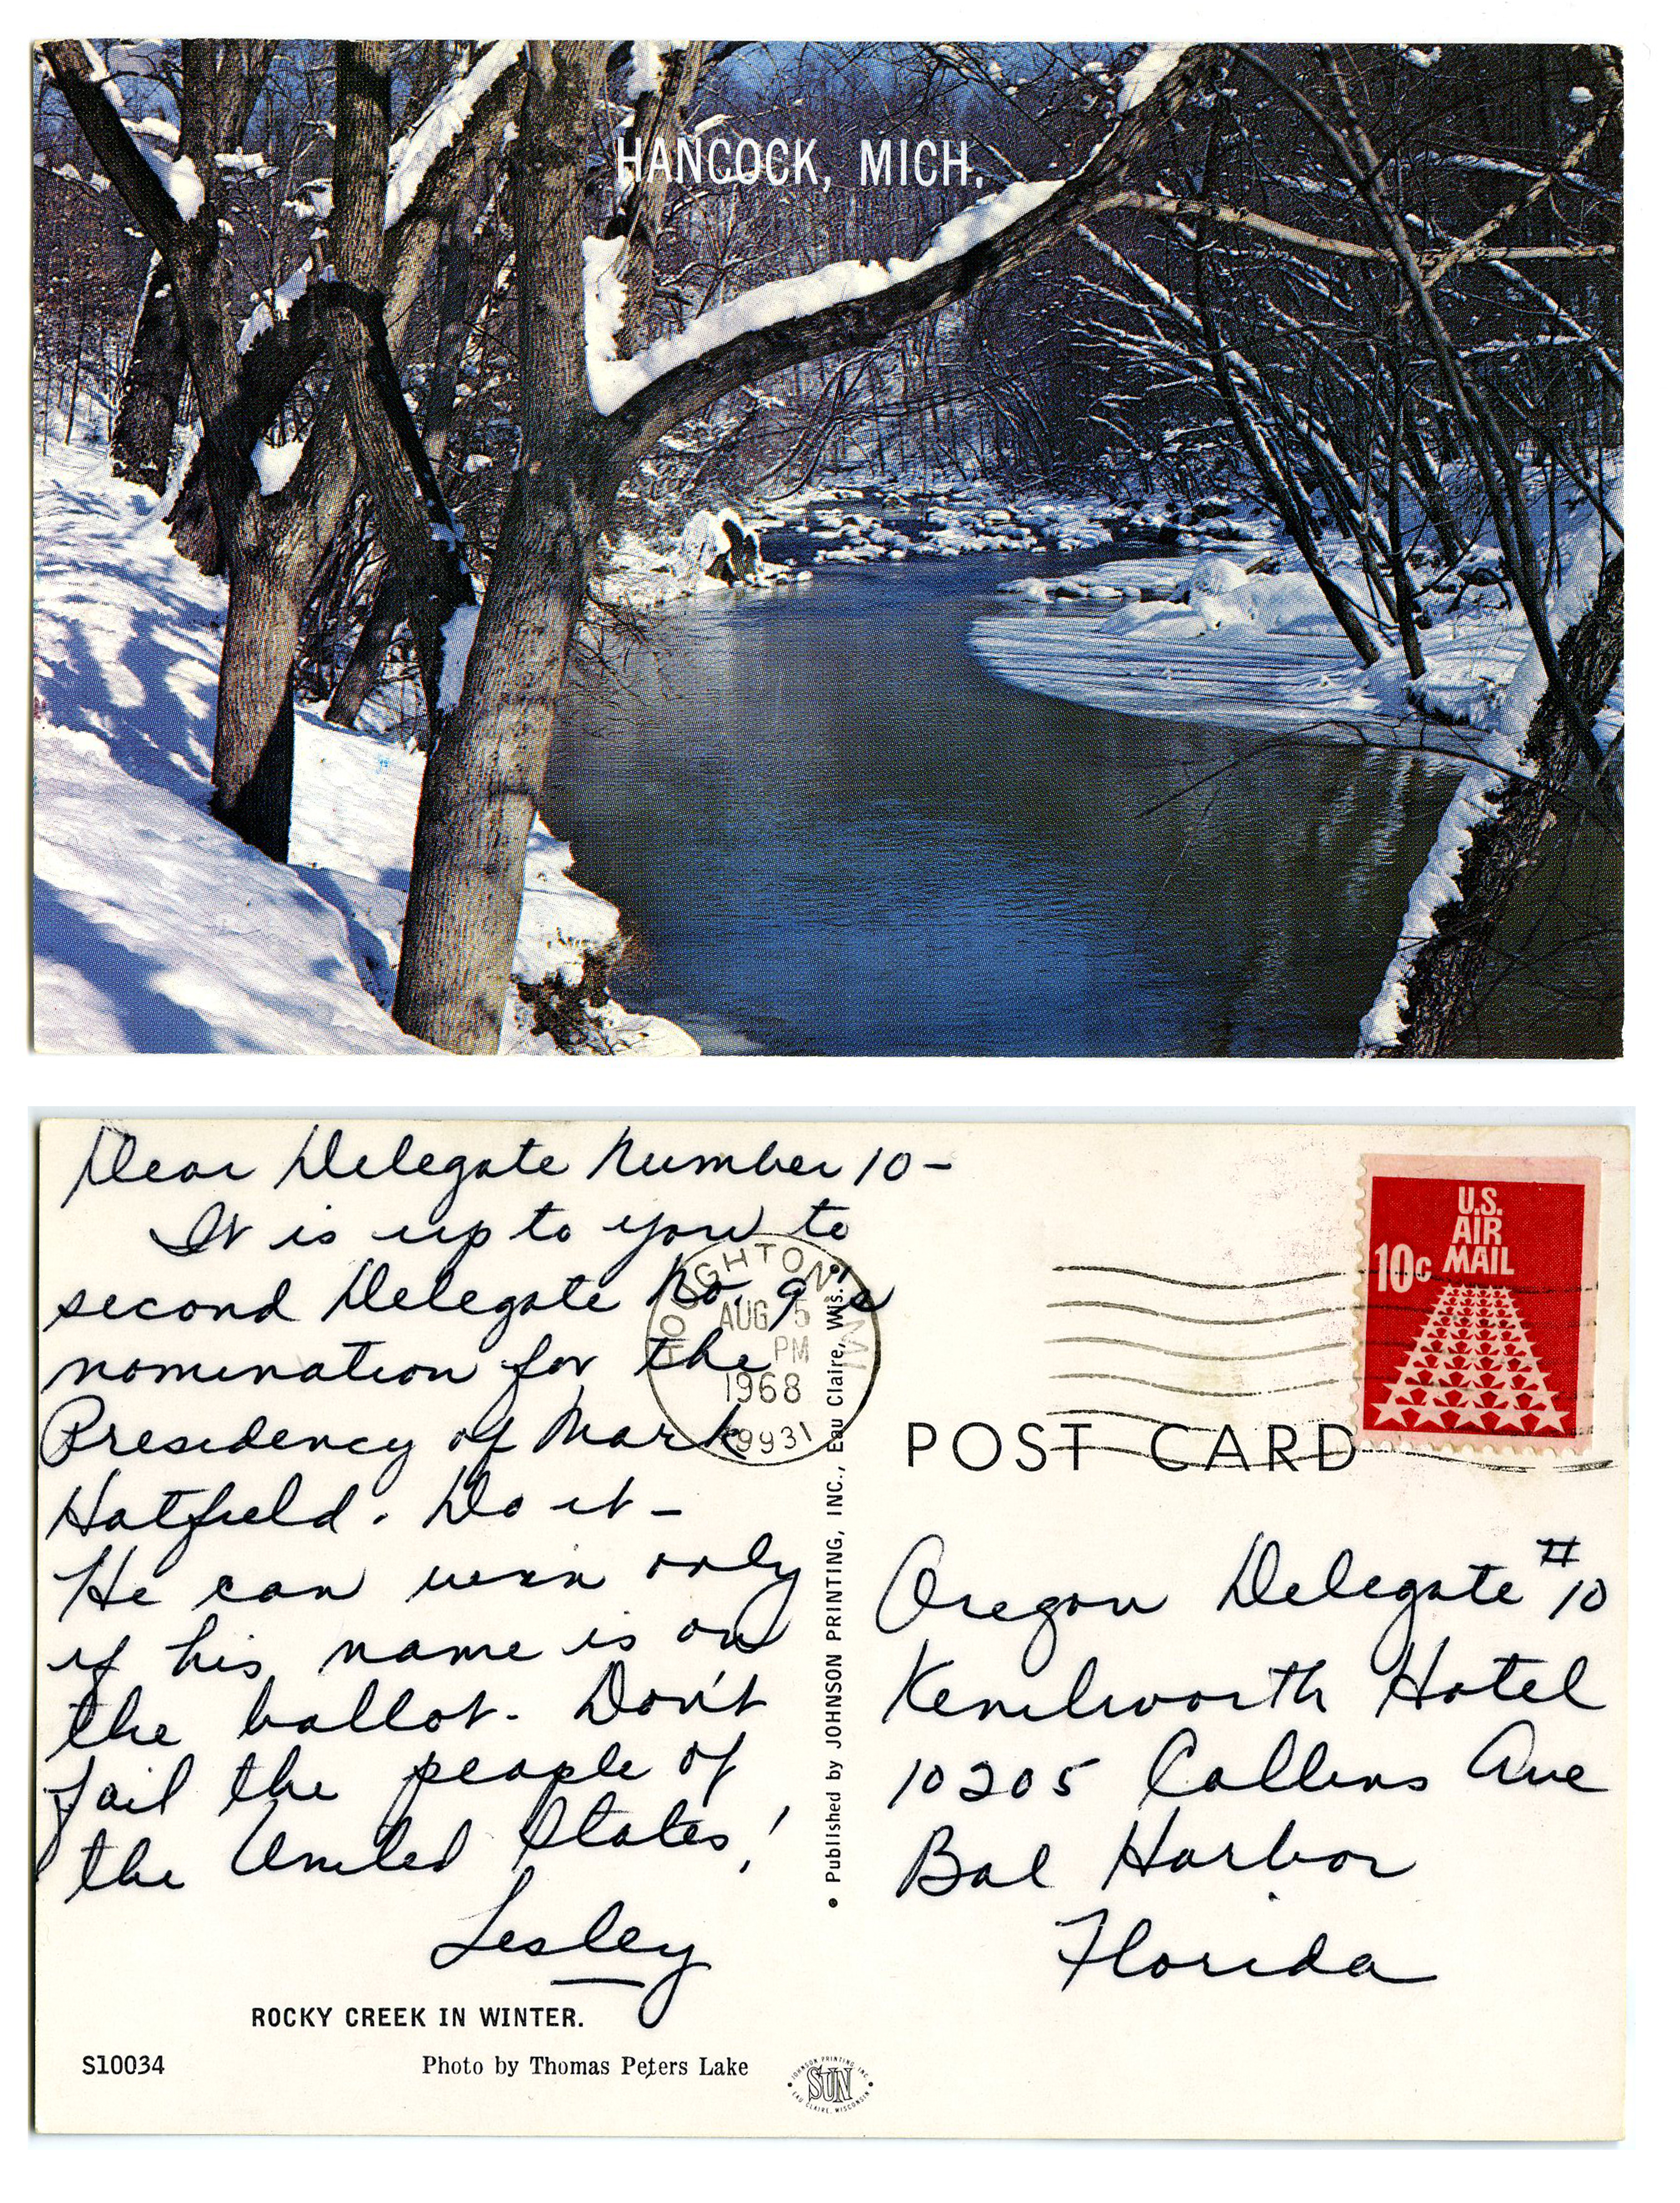 HANCOCK, MICH.
Dear Delegate Number 10-
It is up to you to
second Delegate No. 9's
nomination for the
Presidency of Mark
Hatfield. Do it-
He can win only
if his name is on
the ballot. Don't
fail the people of
the United States!
Lesley
ROCKY CREEK IN WINTER.
S10034
Photo by Thomas Peters Lake
HOUGHTON, MI
AUG 5
PM
1968
49931
• Published by JOHNSON PRINTING, INC., Eau Claire, Wis. •
JOHNSON PRINTING INC.
SUN
EAU CLAIRE, WISCONSIN
U.S.
AIR
10c MAIL
POST CARD
Oregon Delegate #10
Kenilworth Hotel
10205 Collins Ave
Bal Harbor
Florida